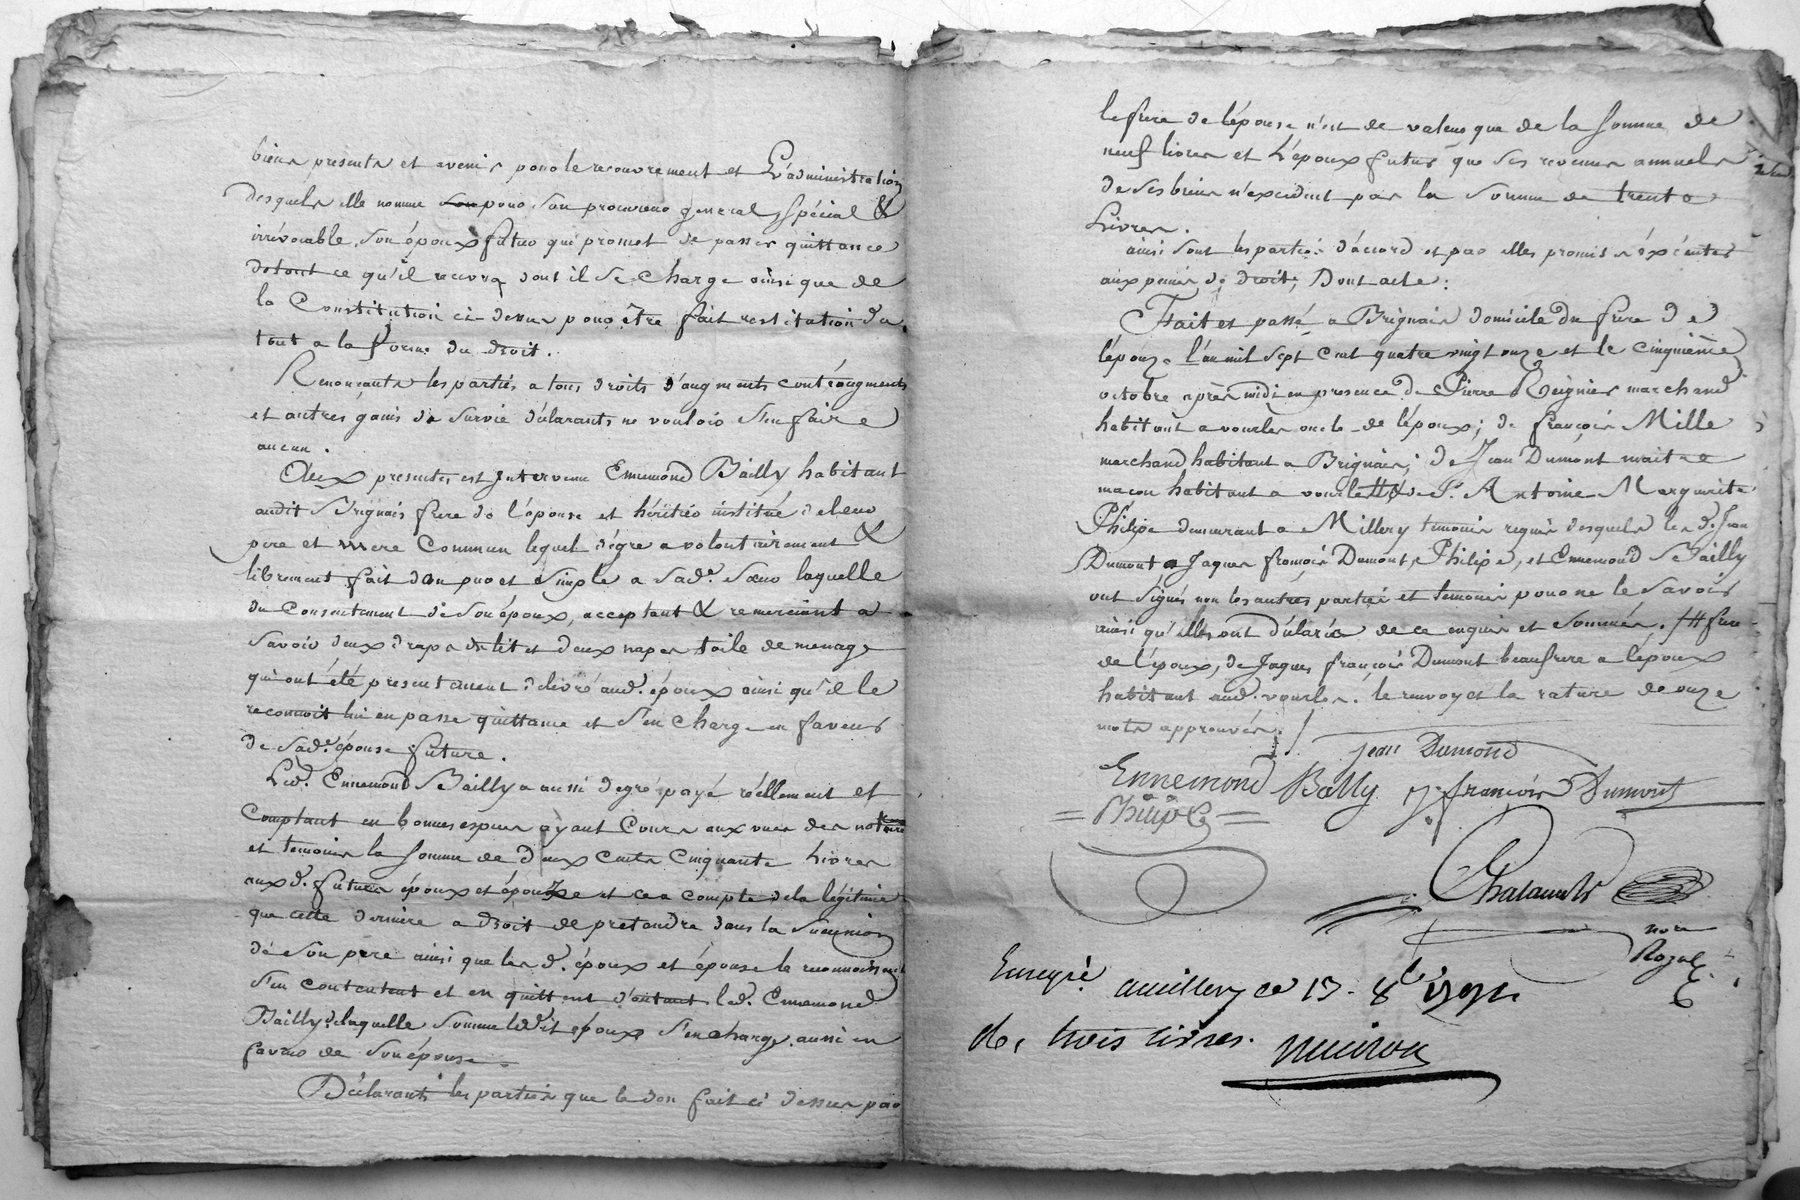 biens presents et avenir pour le recouvrement et L'administration
desquels elle nomme pour son procureur general, spécial &
irrévocable, son époux futur qui promet de passer quittance
de tout ce qu'il recevra dont il se charge ainsi que de
la Constitution ci-dessus pour être fait restitution du
tout a la forme du droit.
Renonçants les partiés a tous droits d'augments contraugments
et autres gains de survie déclarants ne vouloir s'en faire
aucun.
Aux presentes est Intervenu Ennemond Bailly habitant
audit Brignais frere de l'épouse et héritier institué de leur
pere et mere Commun lequel dégré a volontairement &
librement fait don pur et simple a sade. sœur laquelle
du consentement de son époux, acceptant & remerciant a
savoir deux draps de lit et deux napes toile de menage
qui ont été presentement délivré aud. époux ainsi qu'il le
reconnoit lui en passe quittance et s'en charge en faveur
de sade. épouse future.
Led. Ennemond Bailly a aussi dégré payé réellement et
Comptant en bonnes especes ayant Cours aux vues des notaire
et temoins la somme de deux cents cinquante Livres
auxd. futurs époux et épouze et ce a compte de la légitime
que cette derniere a droit de pretendre dans la succession
de son pere ainsi que les d. époux et épouse le reconnoissent
s'en contentent et en quittent d'autant led. Ennemond
Bailly de laquelle somme ledit époux s'en charge aussi en
faveur de son épouse.
Déclarants les partiés que le don fait ci dessus par
le frere de l'épouse n'est de valeur que de la somme de
neuf livres et L'époux futur que ses revenus annuels
de ses biens n'excedent pas la somme de trente
Livres.
ainsi sont les partiés d'accord et par elles promis exécuter
aux peines de droit, Dont acte:
Fait et passé a Brignais domicile du frere de
l'épouze l'an mil sept cent quatre vingt onze et le cinquième
octobre après midi en presence de Pierre Reignier marchand
habitant a vourles oncle de l'époux; de françois Mille
marchand habitant a Brignais; de Jean Dumont maitre
macon habitant a vourles # de Sr. Antoine Marguerite
Philipe demeurant a Millery temoins requis desquels les d. Jean
Dumont Jaques françois Dumont, Philipe, et Ennemond Bailly
ont signés non les autres partiés et temoins pour ne le savoir
ainsi qu'elles ont déclarés de ce enquis et sommés. /# frere
de l'époux, de Jaques françois Dumont beaufrere a l'époux
habitant aud. vourles. le renvoy et la rature de onze
mots approuvés./
jean Dumond
Ennemond Bailly J. françois Dumont
= Philipe =
nore
Royal
Enregré. amillery ce 13. 8bre 1791.
de, trois livres.